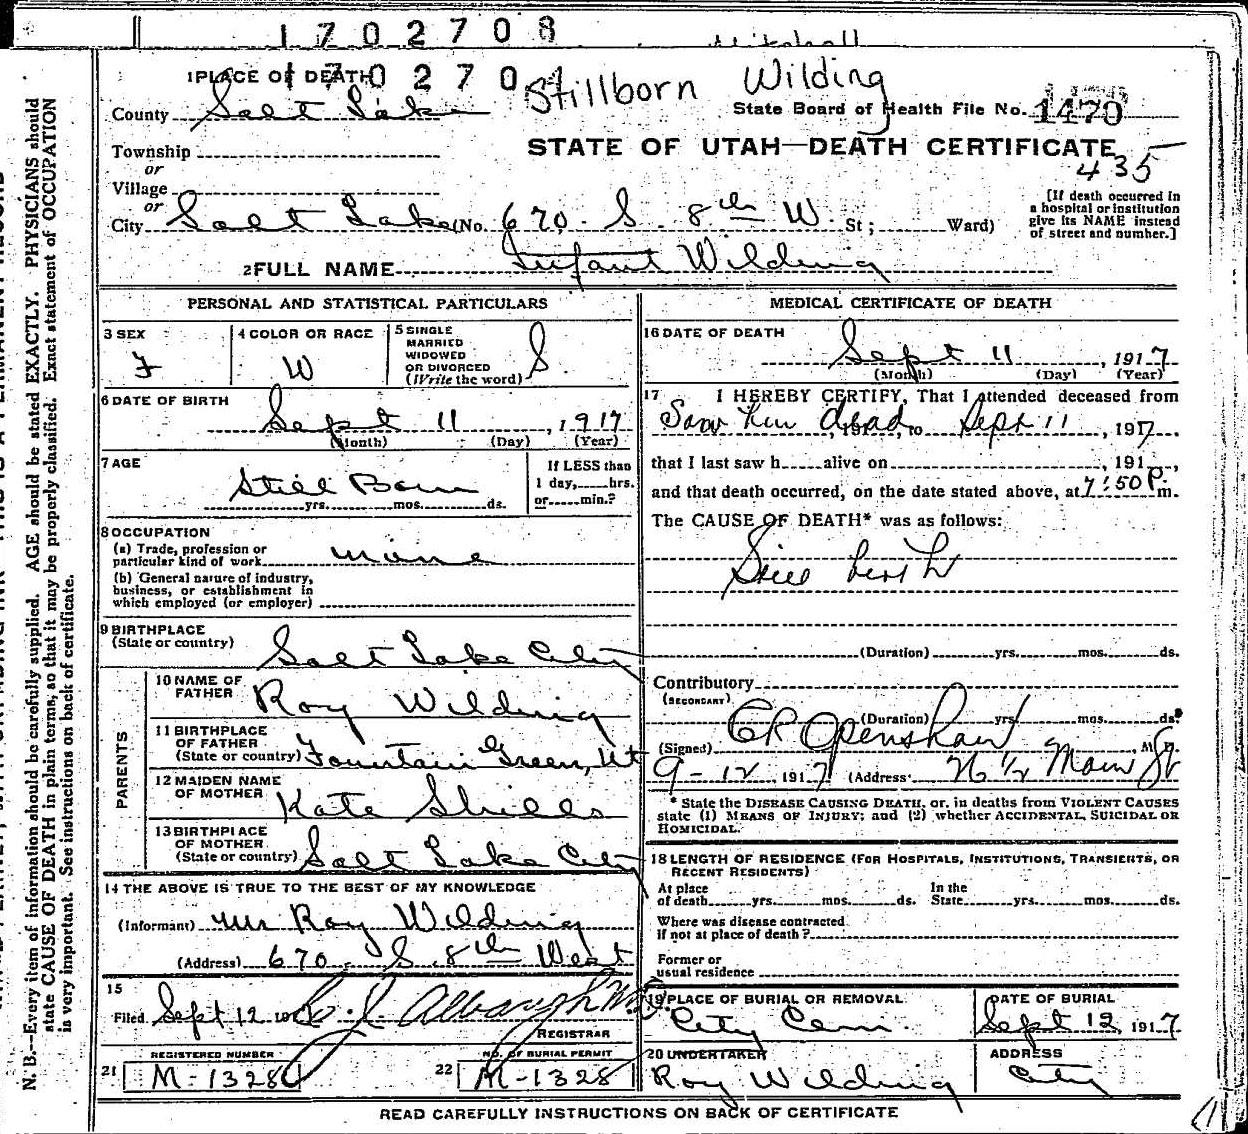 1702708
Mitchell
1 PLACE OF DEATH 170270
Stillborn Wilding
County Salt Lake
State Board of Health File No. 1470
Township
STATE OF UTAH—DEATH CERTIFICATE
435
or
Village
or
City Salt Lake (No. 670 S. 8th W. St; Ward)
[If death occurred in
a hospital or institution
give its NAME instead
of street and number.]
2 FULL NAME Infant Wilding
PERSONAL AND STATISTICAL PARTICULARS
3 SEX
F
4 COLOR OR RACE
W
5 SINGLE
MARRIED
WIDOWED
OR DIVORCED
(Write the word)
S.
6 DATE OF BIRTH
Sept 11, 1917
(Month) (Day) (Year)
7 AGE
Still Born
yrs. mos. ds.
If LESS than
1 day, hrs.
or min.?
8 OCCUPATION
(a) Trade, profession or
particular kind of work
(b) General nature of industry,
business, or establishment in
which employed (or employer)
9 BIRTHPLACE
(State or country) Salt Lake City
PARENTS
10 NAME OF
FATHER Roy Wilding
11 BIRTHPLACE
OF FATHER
(State or country) Fountain Green, Ut
12 MAIDEN NAME
OF MOTHER Kate
13 BIRTHPLACE
OF MOTHER
(State or country) Salt Lake City
14 THE ABOVE IS TRUE TO THE BEST OF MY KNOWLEDGE
(Informant) Mr Roy Wilding
(Address) 670 S. 8th West
15
Filed Sept 12 191
REGISTRAR
REGISTERED NUMBER
21 M-1328
NO. OF BURIAL PERMIT
22 M-1328
MEDICAL CERTIFICATE OF DEATH
16 DATE OF DEATH
Sept 11, 1917
(Month) (Day) (Year)
17 I HEREBY CERTIFY, That I attended deceased from
Saw her dead, 191, to Sept 11, 1917,
that I last saw h alive on , 191 ,
and that death occurred, on the date stated above, at 7:50 P. m.
The CAUSE OF DEATH* was as follows:
Still birth
(Duration) yrs. mos. ds.
Contributory
(SECONDARY)
(Duration) yrs. mos. ds.
(Signed) Openshaw, M. D.
9-12, 1917 (Address) 26 1/2 Main St
* State the DISEASE CAUSING DEATH, or, in deaths from VIOLENT CAUSES
state (1) MEANS OF INJURY; and (2) whether ACCIDENTAL, SUICIDAL OR
HOMICIDAL.
18 LENGTH OF RESIDENCE (FOR HOSPITALS, INSTITUTIONS, TRANSIENTS, OR
RECENT RESIDENTS)
At place
of death yrs. mos. ds.
In the
State yrs. mos. ds.
Where was disease contracted
if not at place of death?
Former or
usual residence
19 PLACE OF BURIAL OR REMOVAL
City Cem.
DATE OF BURIAL
Sept 12, 1917
20 UNDERTAKER
Roy Wilding
ADDRESS
City
READ CAREFULLY INSTRUCTIONS ON BACK OF CERTIFICATE
N. B.—Every item of information should be carefully supplied. AGE should be stated EXACTLY. PHYSICIANS should
state CAUSE OF DEATH in plain terms, so that it may be properly classified. Exact statement of OCCUPATION
is very important. See instructions on back of certificate.